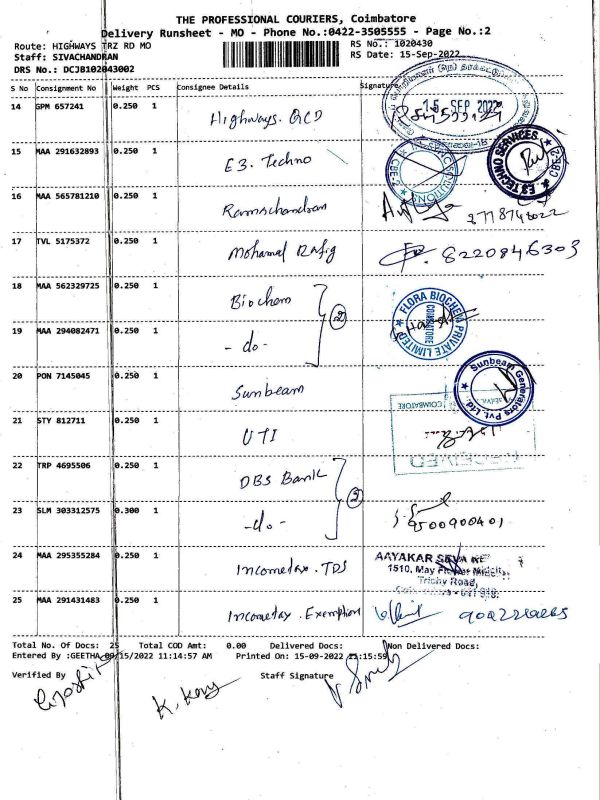 THE PROFESSIONAL COURIERS, Coimbatore
Delivery Runsheet - MO - Phone No.:0422-3505555 - Page No.:2
Route: HIGHWAYS TRZ RD MO RS No.: 1020430
Staff: SIVACHANDRAN RS Date: 15-Sep-2022
DRS No.: DCJB102043002
S No Consignment No Weight PCS Consignee Details Signature
14 GPM 657241 0.250 1 Highways. QCD
15 SEP 2022
15 MAA 291632893 0.250 1 E3. Techno
E3 TECHNO SERVICES ★ CBE-
16 MAA 565781210 0.250 1 Ramachandran
17 TVL 5175372 0.250 1 Mohamed Rafig 8220846303
18 MAA 562329725 0.250 1 Biochem
② FLORA BIOCHEM PRIVATE LIMITED ★ COIMBATORE
19 MAA 294082471 0.250 1 -do-
20 PON 7145045 0.250 1 Sunbeam
Sunbeam Generators Pvt. Ltd. ★
21 STY 812711 0.250 1 UTI
COIMBATORE
RECEIVED
22 TRP 4695506 0.250 1 DBS Bank
②
23 SLM 303312575 0.300 1 -do- 9500900401
24 MAA 295355284 0.250 1 Incometax. TDS
AAYAKAR SEVA KE
1510, May Flower
Trichy Road,
25 MAA 291431483 0.250 1 Incometax. Exemption
Total No. Of Docs: 25 Total COD Amt: 0.00 Delivered Docs: Non Delivered Docs:
Entered By :GEETHA 09/15/2022 11:14:57 AM Printed On: 15-09-2022 11:15:59
Verified By Staff Signature